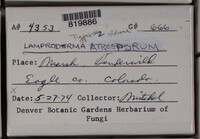 819886
A# 4353 C# 666
LAMPRODERMA ATROSPORUM
Place: Marsh
Eagle co. Colorado.
Date: 5-27-74 Collector: Mitchel
Denver Botanic Gardens Herbarium of
Fungi